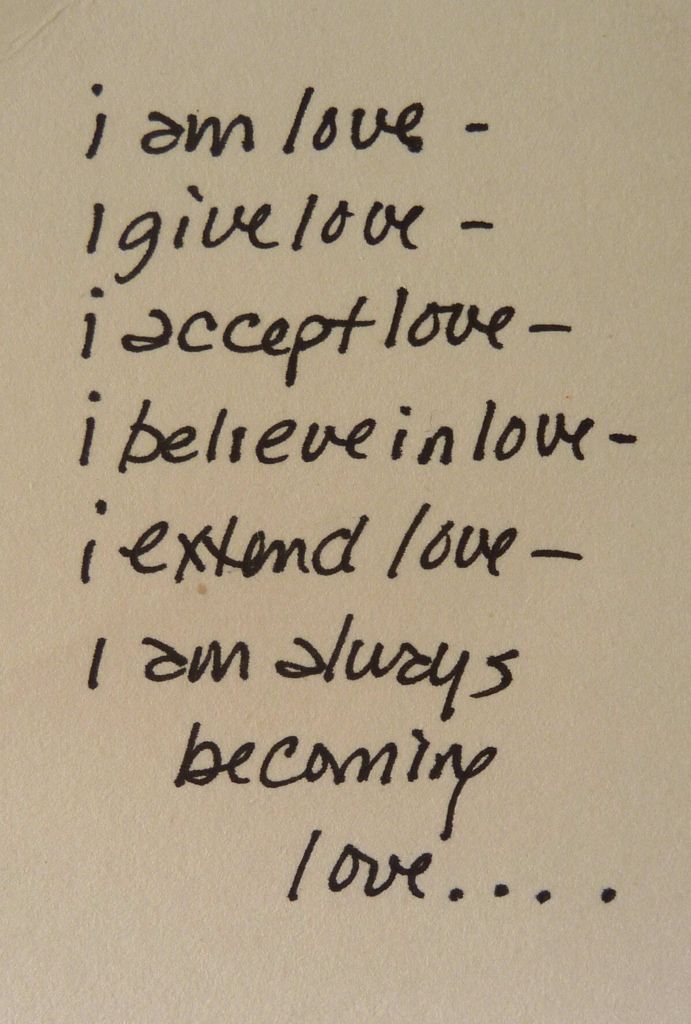 i am love -
I give love -
i accept love -
i believe in love -
i extend love -
I am always
becoming
love....